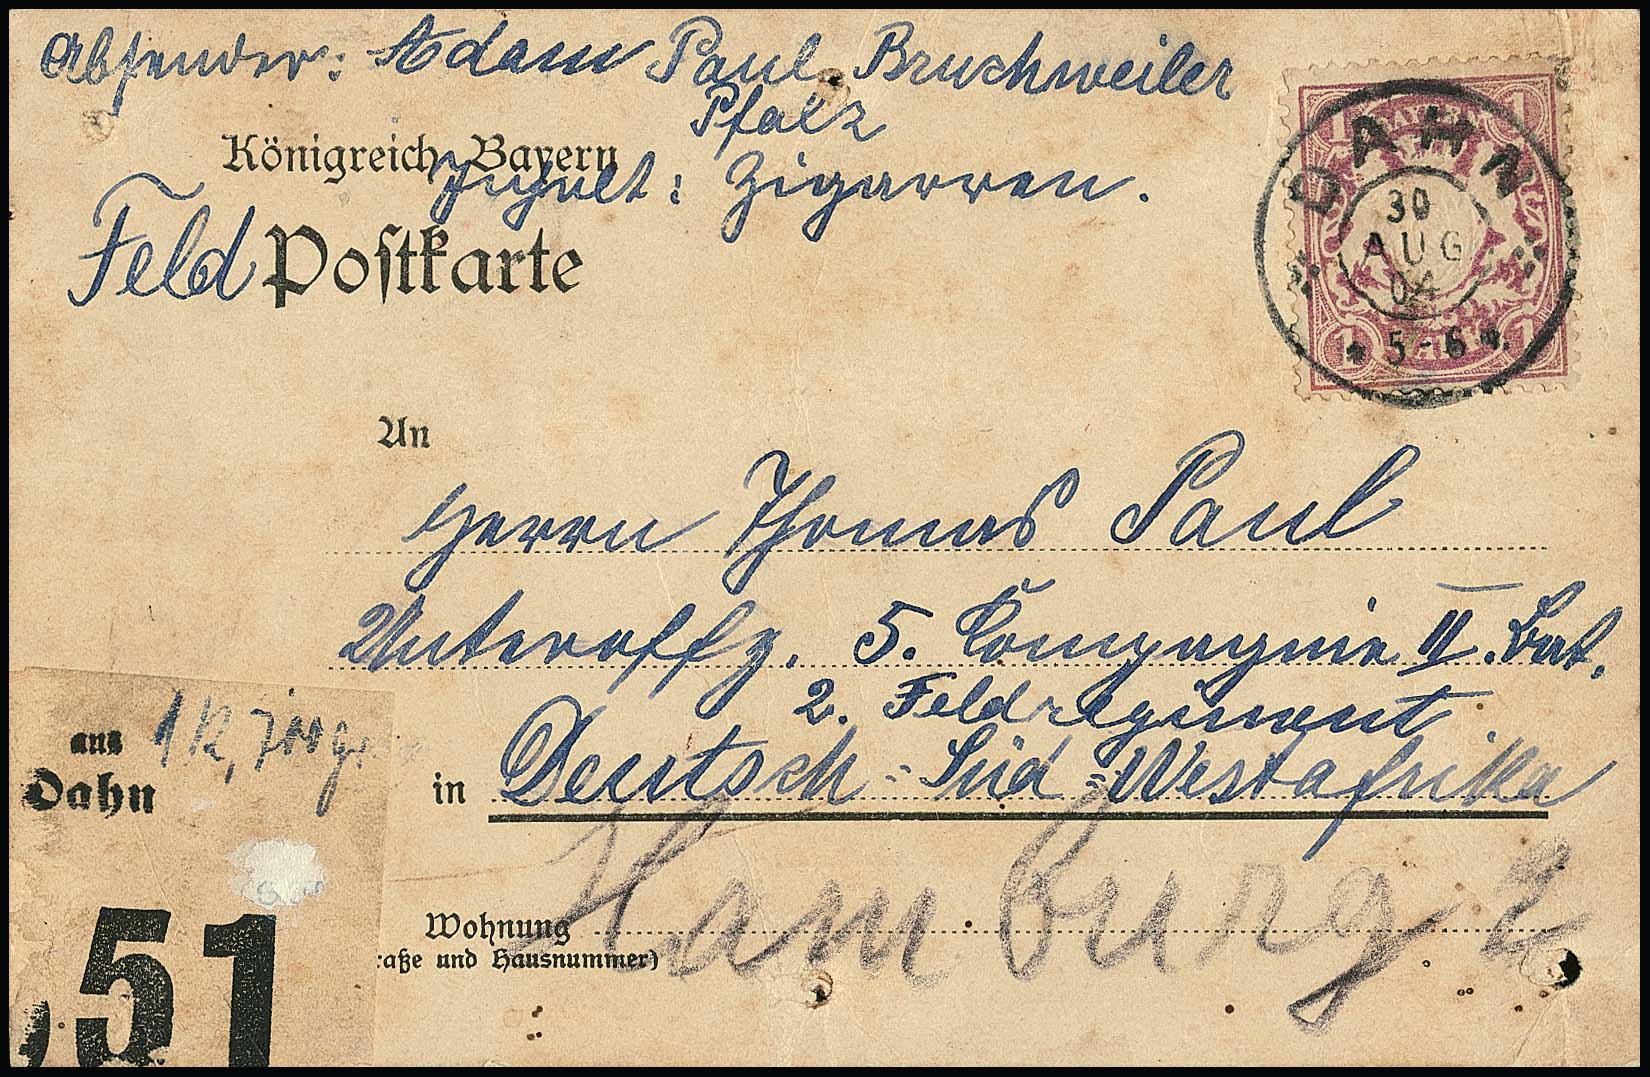 Absender: Adam Paul Bruchweiler
Pfalz
Königreich Bayern
Inhalt: Zigarren.
Feld Postkarte
1 BAYERN 1
DAHN
30
AUG
04
5-6
1 1
An
Herrn Thomas Paul
Unteroffz. 5. Compagnie II. Bat.
2. Feldregiment
in Deutsch-Süd-Westafrika
aus 1 k,
Dahn
51
Hamburg 2
Wohnung
raße und Hausnummer)